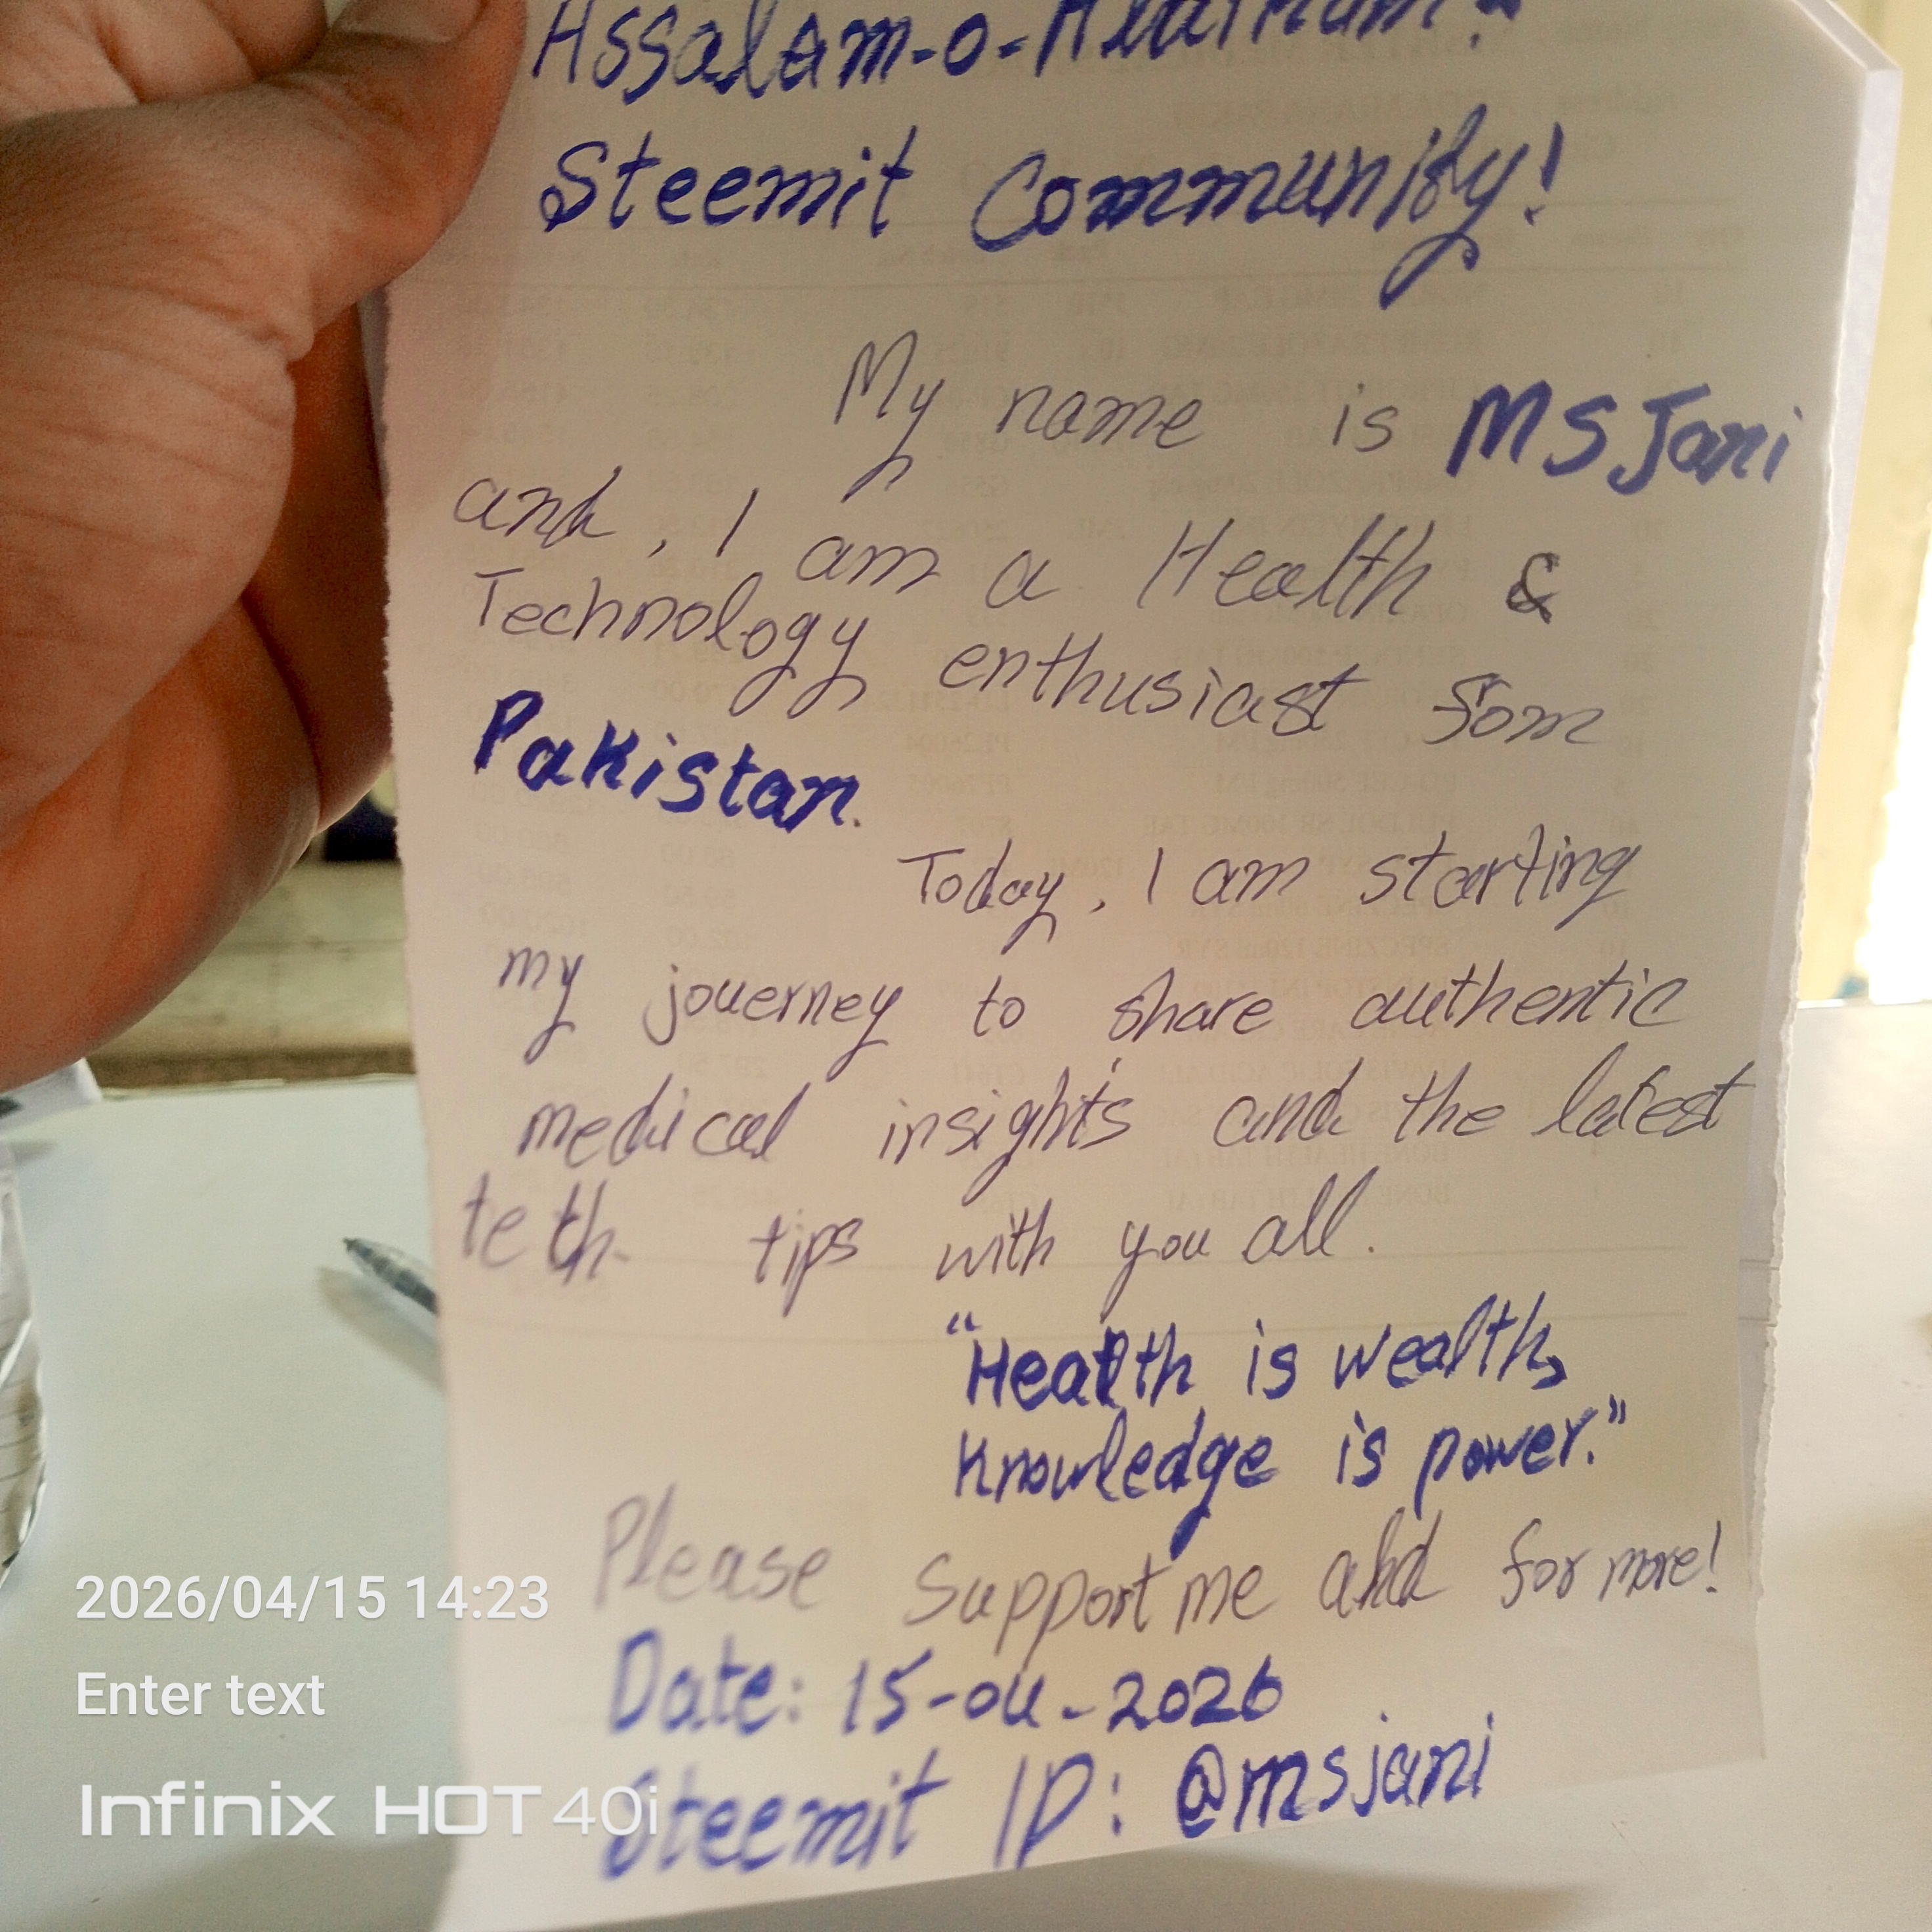 Assalam-o-Alaikum!
Steemit Community!
My name is MS Jani
and, I am a Health &
Technology enthusiast from
Pakistan.
Today, I am starting
my jouerney to share authentic
medical insights and the latest
teth tips with you all.
"Health is wealth,
Knowledge is power."
Please Support me and for more!
Date: 15-04-2026
Steemit ID: @msjani
2026/04/15 14:23
Enter text
Infinix HOT 40i